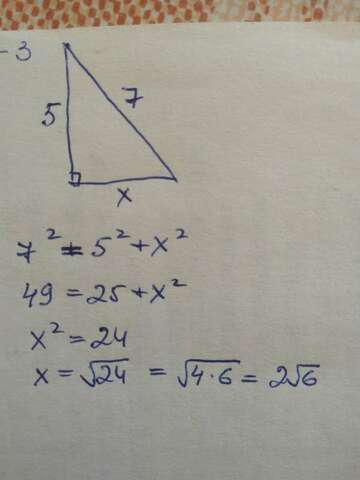 - 3
5
7
x
7² = 5² + x²
49 = 25 + x²
x² = 24
x = √24 = √4·6 = 2√6